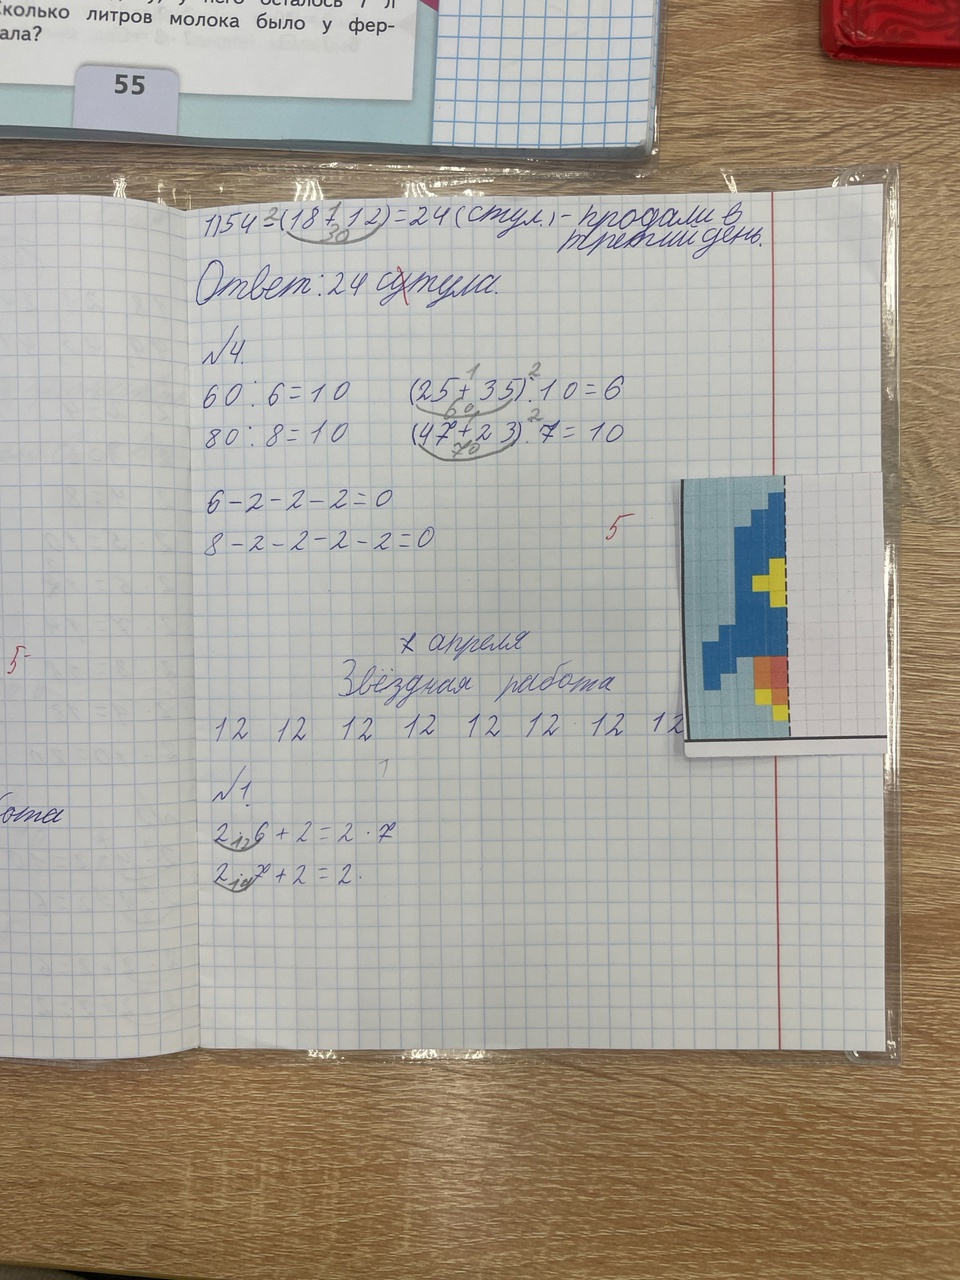 у него осталось 7 л
Сколько литров молока было у фер-
ала?
55
1) 54 - (18 + 12) = 24 (стул.) - продали в
третий день.
2
1
30
Ответ: 24 сутула.
№4.
60 : 6 = 10
(25 + 35) : 10 = 6
1
2
60
80 : 8 = 10
(47 + 23) : 7 = 10
1
2
70
6 - 2 - 2 - 2 = 0
8 - 2 - 2 - 2 - 2 = 0
5
5-
7 апреля
Звёздная работа
12 12 12 12 12 12 12 12
1
№1.
2 · 6 + 2 = 2 · 7
12
2 · 7 + 2 = 2 ·
14
бота